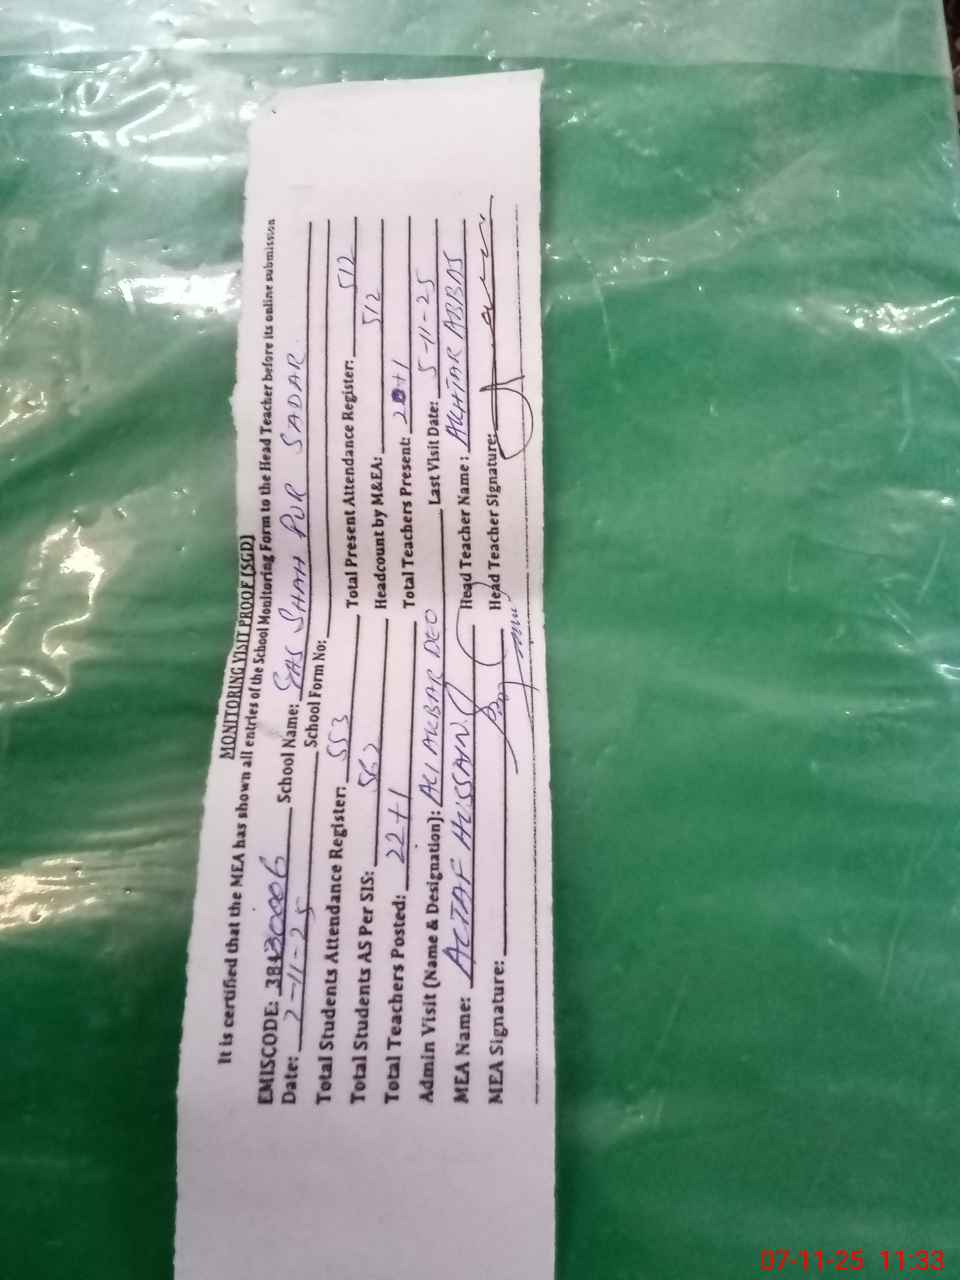 MONITORING VISIT PROOF (SGD)
It is certified that the MEA has shown all entries of the School Monitoring Form to the Head Teacher before its online submission
EMISCODE: School Name: SHAH PUR SADAR
Date: 7-11-25 School Form No:
Total Students Attendance Register: 553 Total Present Attendance Register: 512
Total Students AS Per SIS: 562 Headcount by M&EA: 512
Total Teachers Posted: 22+1 Total Teachers Present: 20+1
Admin Visit (Name & Designation): ALI AKBAR DEO Last Visit Date: 5-11-25
MEA Name: ALTAF HUSSAIN Head Teacher Name: AKHTAR ABBAS
MEA Signature: Head Teacher Signature:
07-11-25 11:33